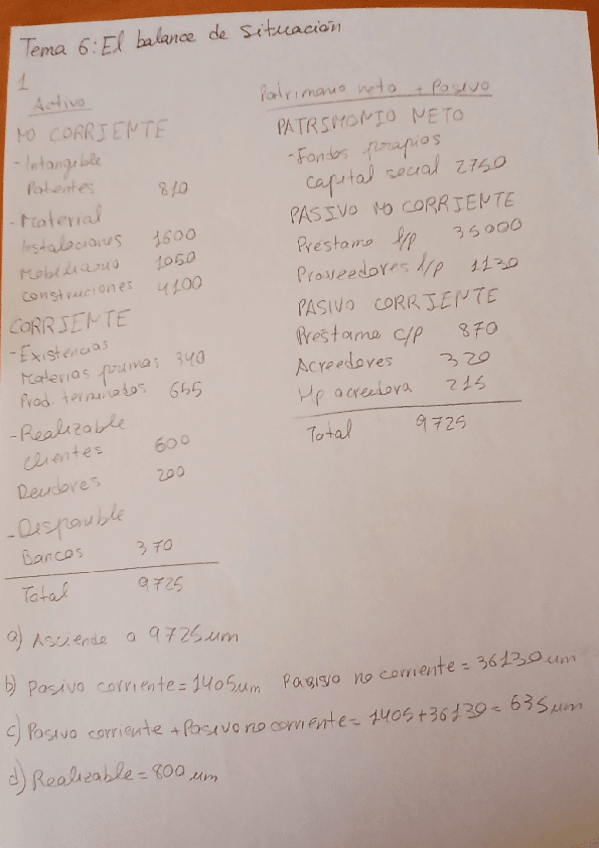 Tema 6: El balance de situación
1
Activo
NO CORRIENTE
- Intangible
Patentes 810
- Material
Instalaciones 1600
Mobiliario 1050
Construciones 4100
CORRIENTE
- Existencias
Materias primas 340
Prod. terminados 655
- Realizable
Clientes 600
Deudores 200
- Disponible
Bancos 370
Total 9725
Patrimonio neto + Pasivo
PATRIMONIO NETO
- Fondos propios
Capital social 2750
PASIVO NO CORRIENTE
Préstamo l/p 35000
Proveedores l/p 1130
PASIVO CORRIENTE
Préstamo c/p 870
Acreedores 320
Hp acreedora 215
Total 9725
a) Asciende a 9725 um
b) Pasivo corriente = 1405 um Pasivo no corriente = 36130 um
c) Pasivo corriente + Pasivo no corriente = 1405 + 36130 = 635 um
d) Realizable = 800 um